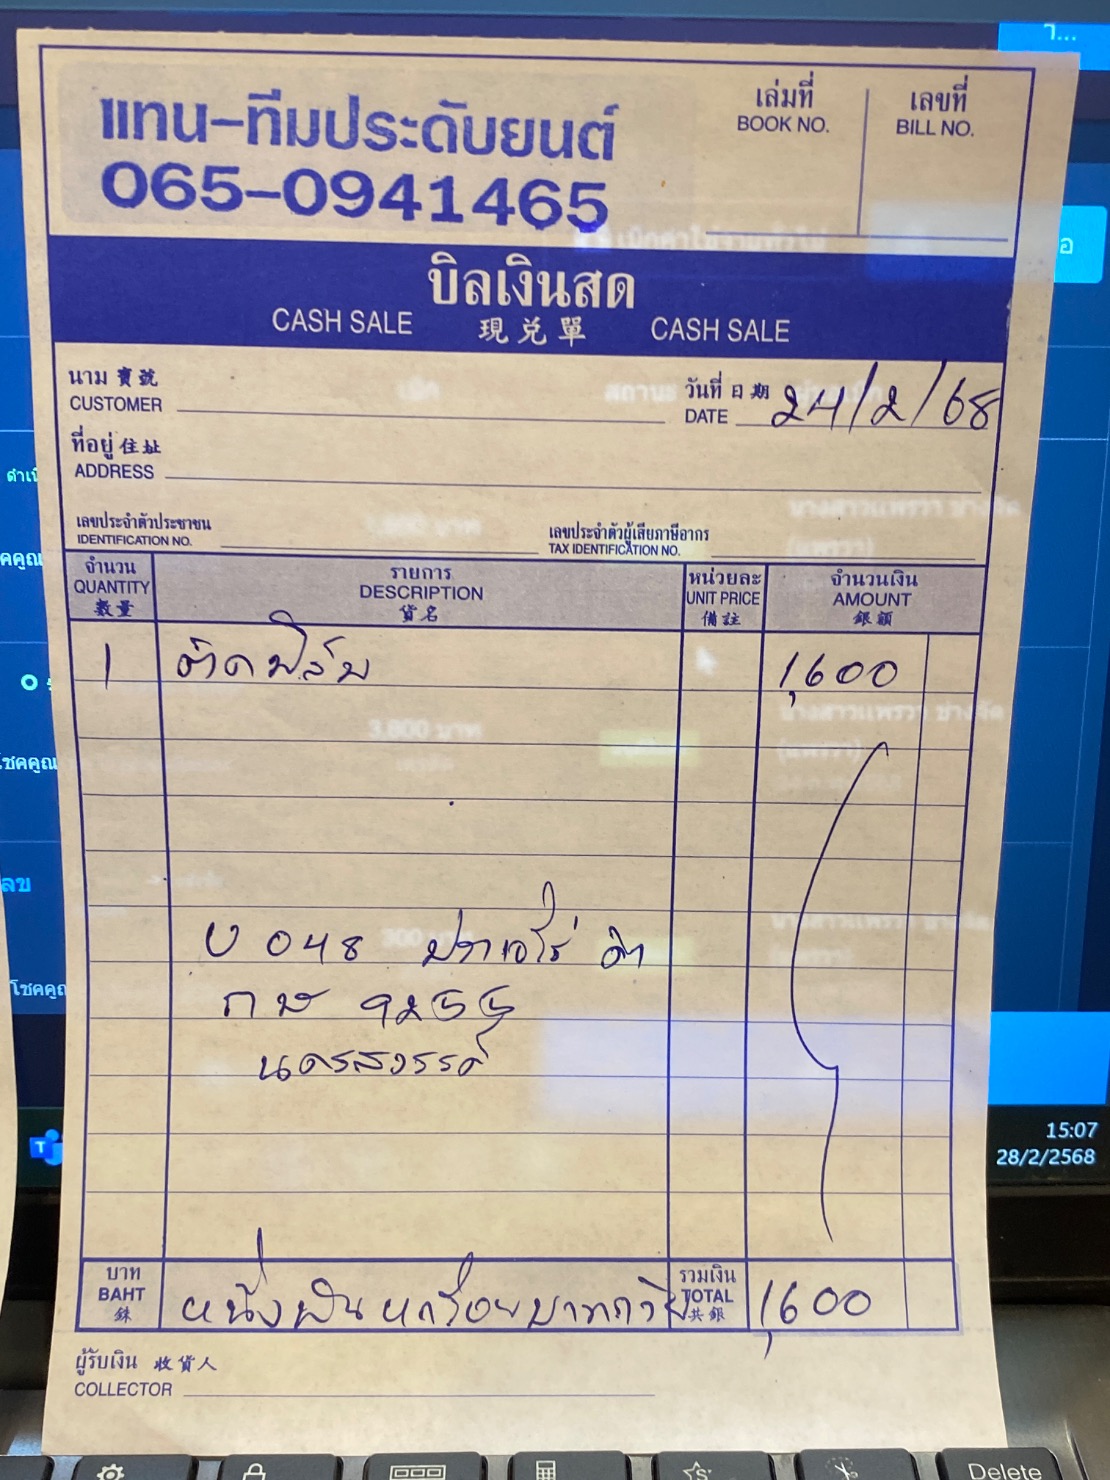 แทน-ทีมประดับยนต์
065-0941465
เล่มที่
BOOK NO.
เลขที่
BILL NO.
บิลเงินสด
CASH SALE 現兑單 CASH SALE
นาม 寶號
CUSTOMER
วันที่ 日期
DATE 24/2/68
ที่อยู่ 住址
ADDRESS
เลขประจำตัวประชาชน
IDENTIFICATION NO.
เลขประจำตัวผู้เสียภาษีอากร
TAX IDENTIFICATION NO.
จำนวน
QUANTITY
數量
รายการ
DESCRIPTION
貨名
หน่วยละ
UNIT PRICE
備註
จำนวนเงิน
AMOUNT
銀額
1 ติดฟิล์ม 1,600
U 048 ปาเจโร่ ดำ
กษ 9255
นครสวรรค์
บาท
BAHT
銖
หนึ่งพันหกร้อยบาทถ้วน
รวมเงิน
TOTAL
共銀
1,600
ผู้รับเงิน 收貨人
COLLECTOR
15:07
28/2/2568
Delete